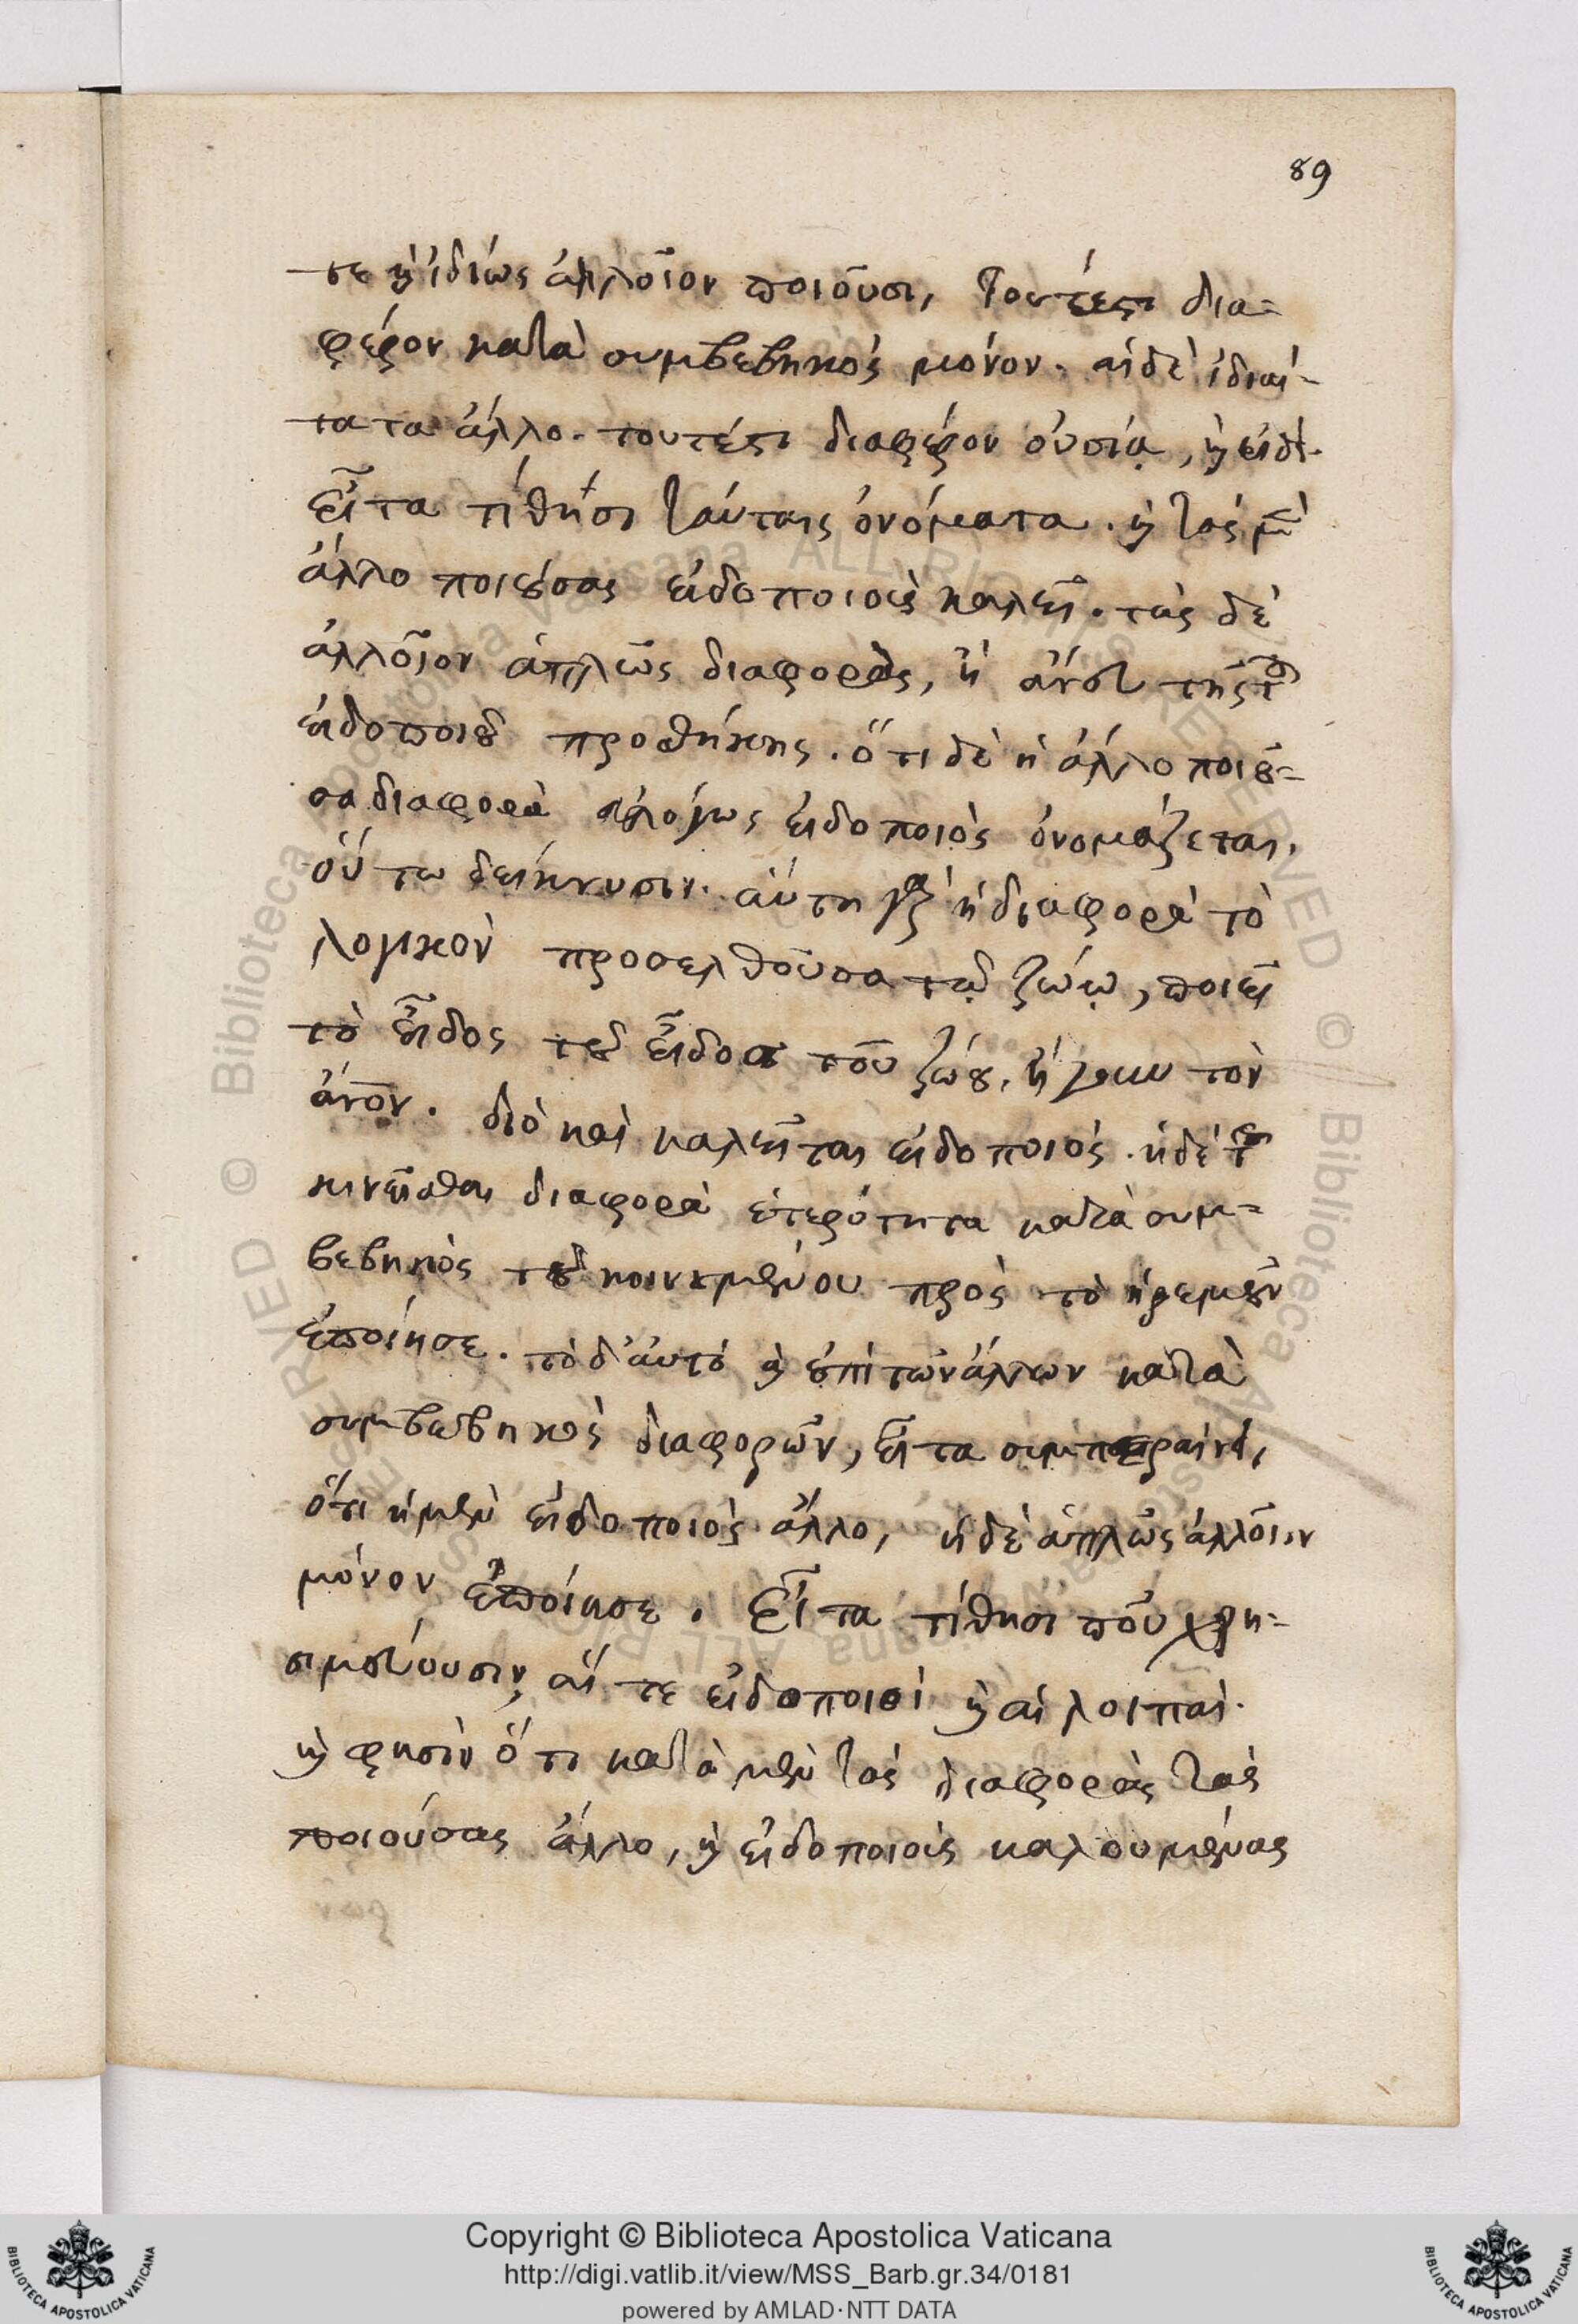 89
τε κ̀ ἰδίως ἀλλοῖον ποιοῦσι, τουτέστι δια-
φέρον κατὰ συμβεβηκὸς μόνον. αἱ δὲ ἰδιαί-
τατα ἄλλο. τουτέστι διαφέρον οὐσίᾳ, κ̀ εἴδει.
Εἶτα τίθησι ταύταις ὀνόματα. κ̀ τὰς μὲν
ἄλλο ποιούσας εἰδοποιοὺς καλεῖ. τὰς δὲ
ἀλλοῖον ἁπλῶς διαφορὰς, ἢ ἄνευ τῆς τοῦ
εἰδοποιοῦ προσθήκης. ὅτι δὲ ἡ ἄλλο ποιοῦ-
σα διαφορὰ εὐλόγως εἰδοποιὸς ὀνομάζεται,
οὕτω δείκνυσιν. αὕτη γὰρ ἡ διαφορὰ τὸ
λογικὸν προσελθοῦσα τῷ ζώῳ, ποιεῖ
τὸ εἶδος τοῦ εἴδους τοῦ ζώου, ἤγουν τὸν
ἄνον. διὸ καὶ καλεῖται εἰδοποιός. ἡ δὲ τοῦ
κινεῖσθαι διαφορὰ ἑτερότητα κατὰ συμ-
βεβηκὸς τοῦ κινουμένου πρὸς τὸ ἠρεμοῦν
ἐποίησε. τὸ δ' αὐτὸ κ̀ ἐπὶ τῶν ἄλλων κατὰ
συμβεβηκὸς διαφορῶν, εἶτα συμπεραίνει,
ὅτι ἡ μὲν εἰδοποιὸς ἄλλο, ἡ δὲ ἁπλῶς ἀλλοῖον
μόνον ἐποίησε. Εἶτα τίθησι ποῦ χρη-
σιμεύουσιν αἵ τε εἰδοποιοὶ κ̀ αἱ λοιπαί.
κ̀ φησὶν ὅτι κατὰ μὲν τὰς διαφορὰς τὰς
ποιούσας ἄλλο, κ̀ εἰδοποιοὺς καλουμένας
Copyright © Biblioteca Apostolica Vaticana
http://digi.vatlib.it/view/MSS_Barb.gr.34/0181
powered by AMLAD·NTT DATA